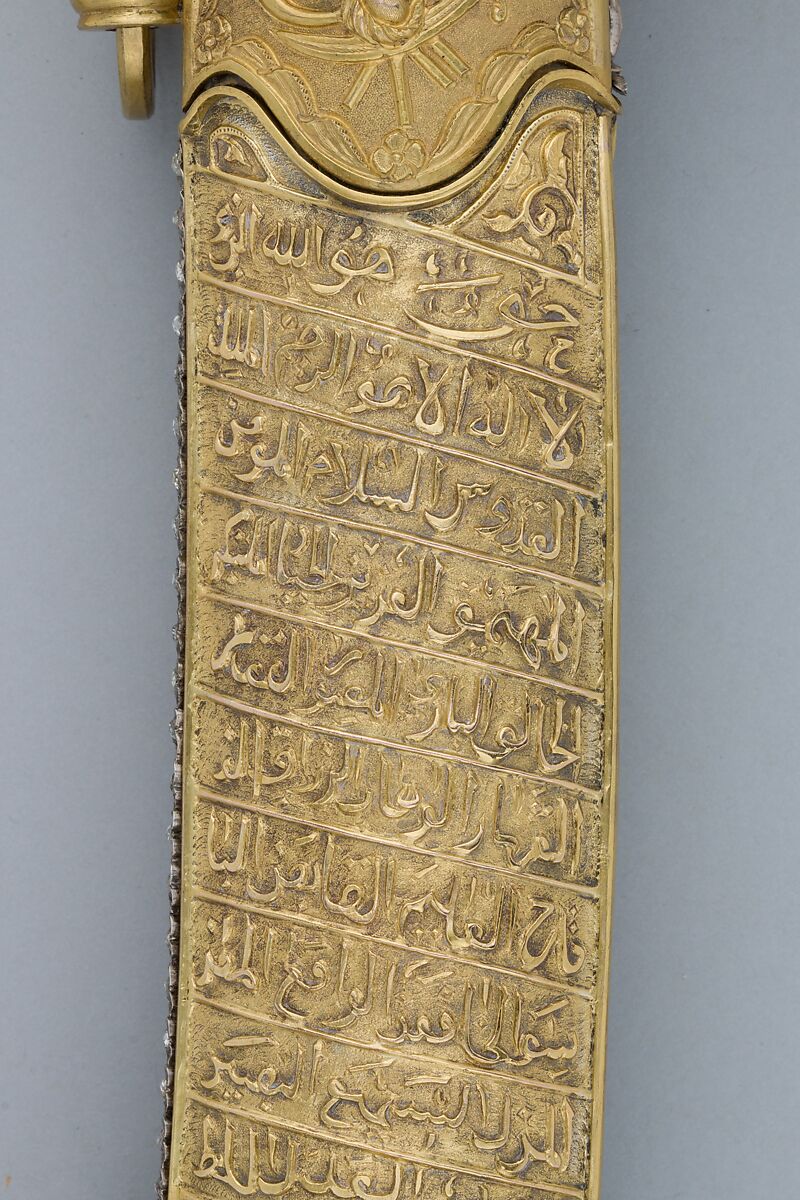 هو الله الذي
لا اله الا هو الرحيم الملك
القدوس السلام المومن
المهيمن العزيز الجبار المتكبر
الخالق البارئ المصور الغفار
القهار الوهاب الرزاق الفـ
تاح العليم القابض البا
سط الخافض الرافع المعز
المذل السميع البصير
العدل اللط